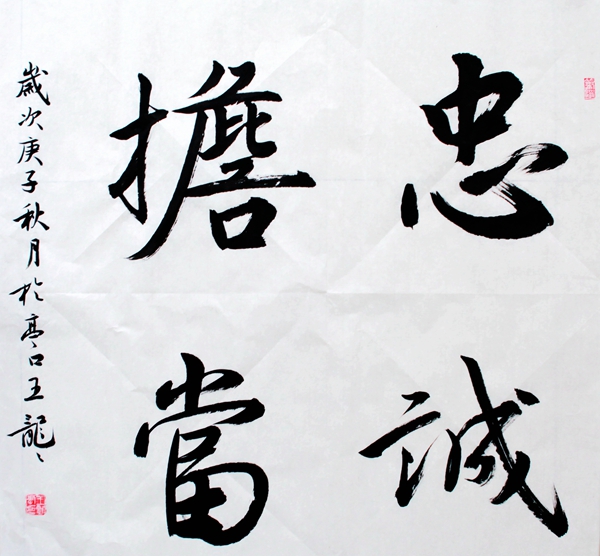 忠誠
擔當
歲次庚子秋月於亭口王龍